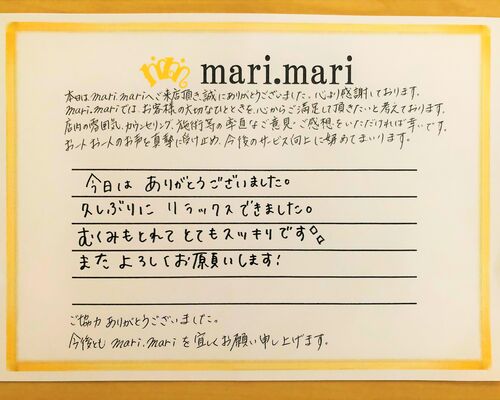 mari
mari.mari
本日は mari.mariへご来店頂き、誠にありがとうございました。心より感謝しております。
mari.mariでは、お客様の大切なひとときを、心からご満足して頂きたいと考えております。
店内の雰囲気、カウンセリング、施術等の率直なご意見・ご感想をいただければ幸いです。
お一人お一人のお声を真摯に受け止め、今後のサービス向上に努めてまいります。
今日は ありがとうございました。
久しぶりに リラックスできました。
むくみもとれて とてもスッキリです
また よろしくお願いします!
ご協力 ありがとうございました。
今後とも mari.mari を宜しくお願い申し上げます。